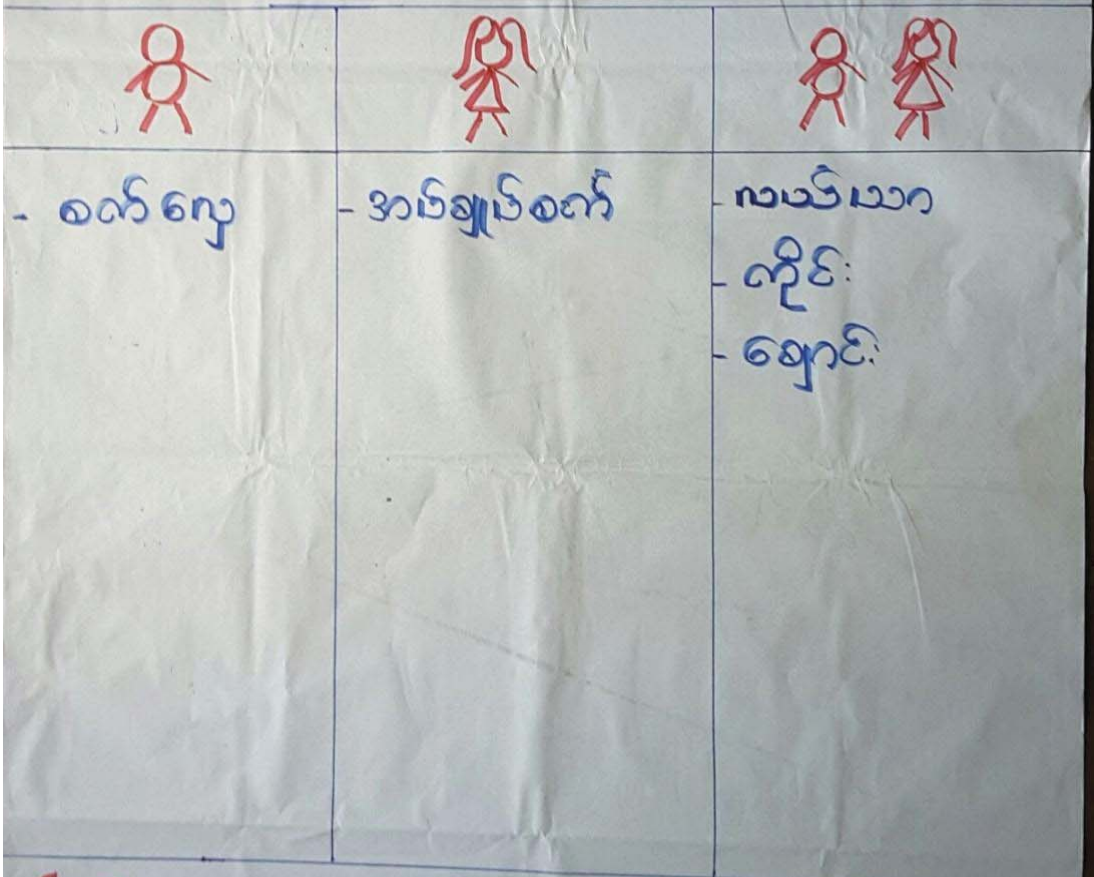 - စက်လှေ
- အပ်ချုပ်စက်
- လယ်ယာ
- ကိုင်း
- ချောင်း